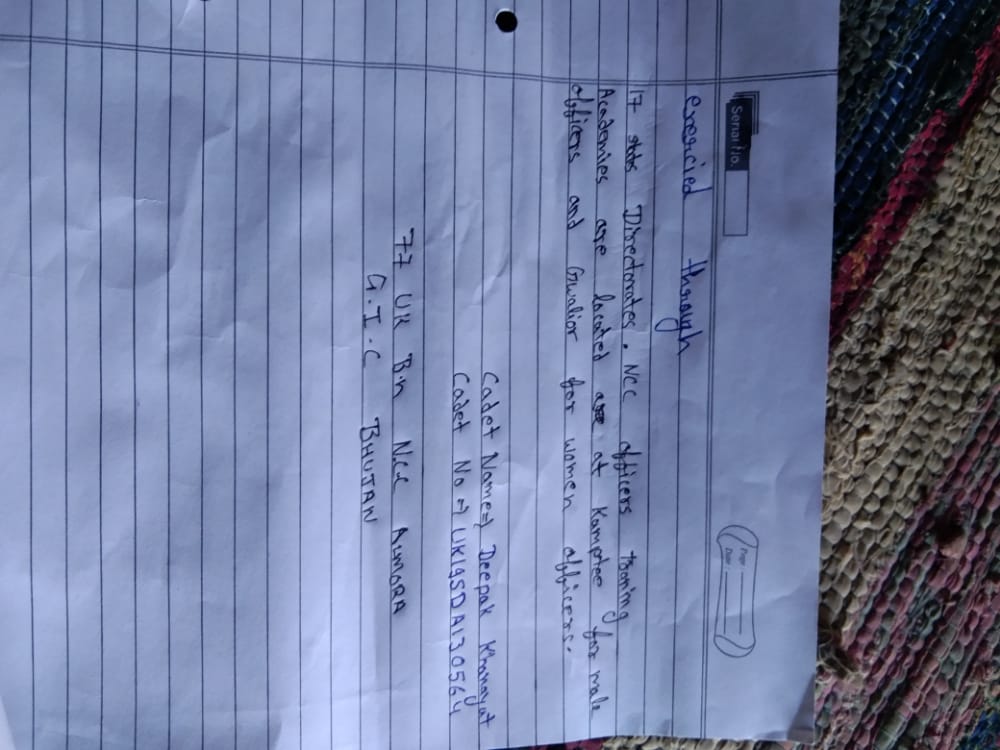 Serial No.
Page
Date
exercied through
17 stats Directorates. NCC officers traning
Academies are located at Kamptee for male
officers and Gwalior for women officers.
Cadet Name => Deepak Khanayat
Cadet No => UK19SDA130564
77 UK B.n NCC ALMORA
G.I.C BHUTAN